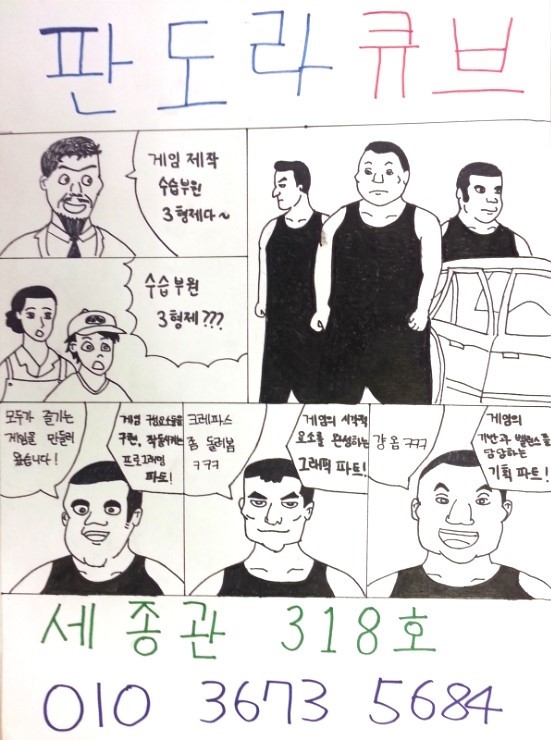 판도라 큐브
게임 제작
수습부원
3형제다~
수습부원
3형제???
모두가 즐기는
게임을 만들러
왔습니다!
게임 구성요소들을
구현, 작동시키는
프로그래밍
파트!
크레파스
좀 둘러봄
ㅋㅋㅋ
게임의 시각적
요소를 완성하는
그래픽 파트!
걍 옴 ㅋㅋㅋ
게임의
기반과 밸런스를
담당하는
기획 파트!
세종관 318호
010 3673 5684